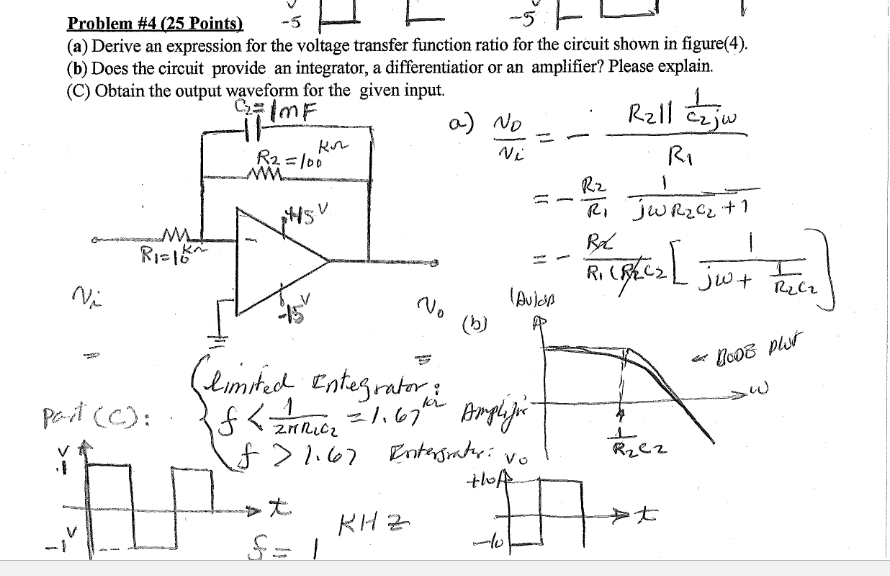 -5 -5
Problem #4 (25 Points)
(a) Derive an expression for the voltage transfer function ratio for the circuit shown in figure(4).
(b) Does the circuit provide an integrator, a differentiatior or an amplifier? Please explain.
(C) Obtain the output waveform for the given input.
C2 = 1mF
R2 = 100 KΩ
+15 V
R1 = 10 KΩ
-15 V
Vi
Vo
a) Vo/Vi = - R2 || 1/(C2jω) / R1
= - R2/R1 1/(jωR2C2+1)
= - R2/(R1(R2C2)) [1/(jω + 1/(R2C2))]
(b)
|Av|dB
← BODE plot
ω
1/(R2C2)
limited Integrator:
f < 1/(2πR2C2) = 1.67 Amplifier
f > 1.67 Integrator:
Part (C):
V
.1
-1 V
t
f = 1 KHZ
Vo
+10
-10
t